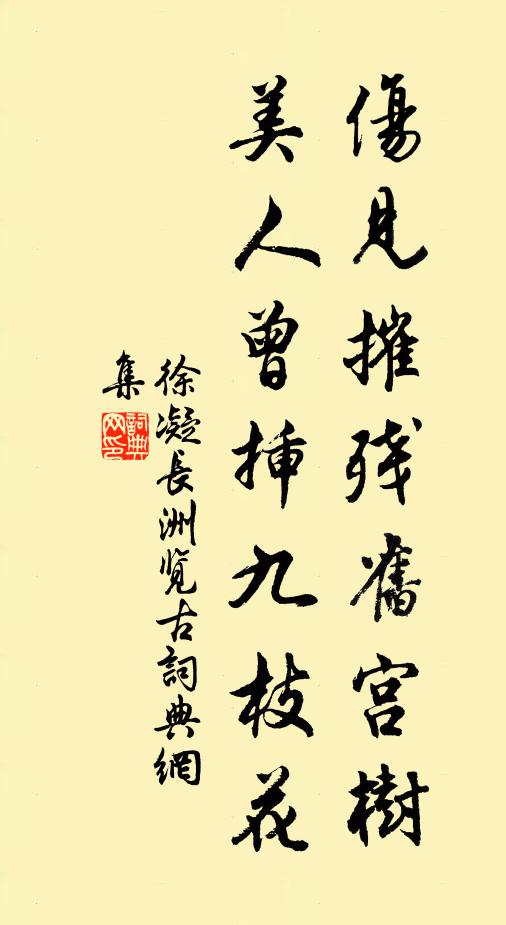 傷見摧残舊宮樹
美人曾插九枝花
徐凝長洲览古詞典網
集
詞典
网印